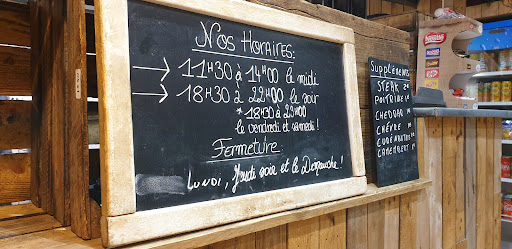 Nos Horaires:
→ 11H30 à 14H00 le midi
→ 18H30 à 22H00 le soir
* 18H30 à 23H00
le vendredi et samedi !
Fermeture:
Lundi, Jeudi soir et le Dimanche !
Suppléments
STEAK 2€
POITRINE 1€
CHEDDAR
CHÈVRE
CAMEMBERT
Nestlé